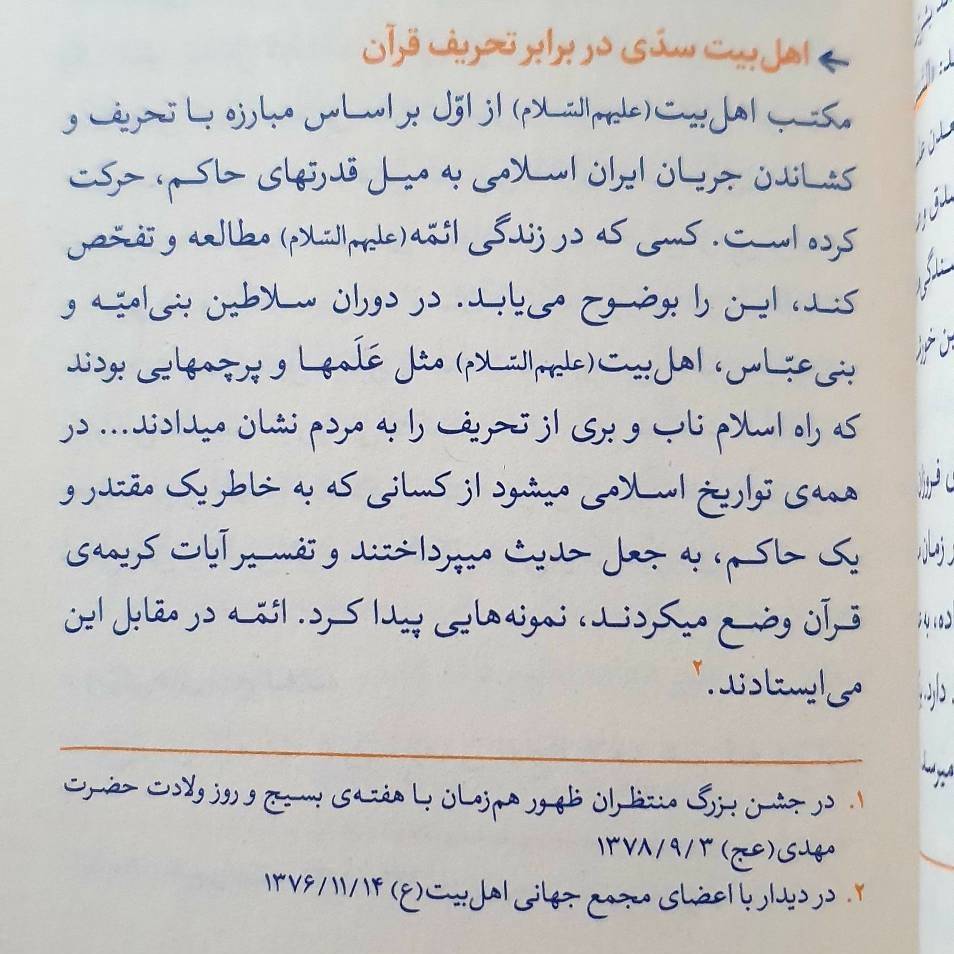 ← اهل‌بیت سدّی در برابر تحریف قرآن
مکتب اهل‌بیت(علیهم‌السّلام) از اوّل بر اساس مبارزه با تحریف و
کشاندن جریان ایران اسلامی به میل قدرتهای حاکم، حرکت
کرده است. کسی که در زندگی ائمّه(علیهم‌السّلام) مطالعه و تفحّص
کند، این را بوضوح می‌یابد. در دوران سلاطین بنی‌امیّه و
بنی‌عبّاس، اهل‌بیت(علیهم‌السّلام) مثل عَلَمها و پرچمهایی بودند
که راه اسلام ناب و بری از تحریف را به مردم نشان میدادند... در
همه‌ی تواریخ اسلامی میشود از کسانی که به خاطر یک مقتدر و
یک حاکم، به جعل حدیث میپرداختند و تفسیر آیات کریمه‌ی
قرآن وضع میکردند، نمونه‌هایی پیدا کرد. ائمّه در مقابل این
می‌ایستادند.۲
۱. در جشن بزرگ منتظران ظهور هم‌زمان با هفته‌ی بسیج و روز ولادت حضرت
مهدی(عج) ۱۳۷۸/۹/۳
۲. در دیدار با اعضای مجمع جهانی اهل‌بیت(ع) ۱۳۷۶/۱۱/۱۴